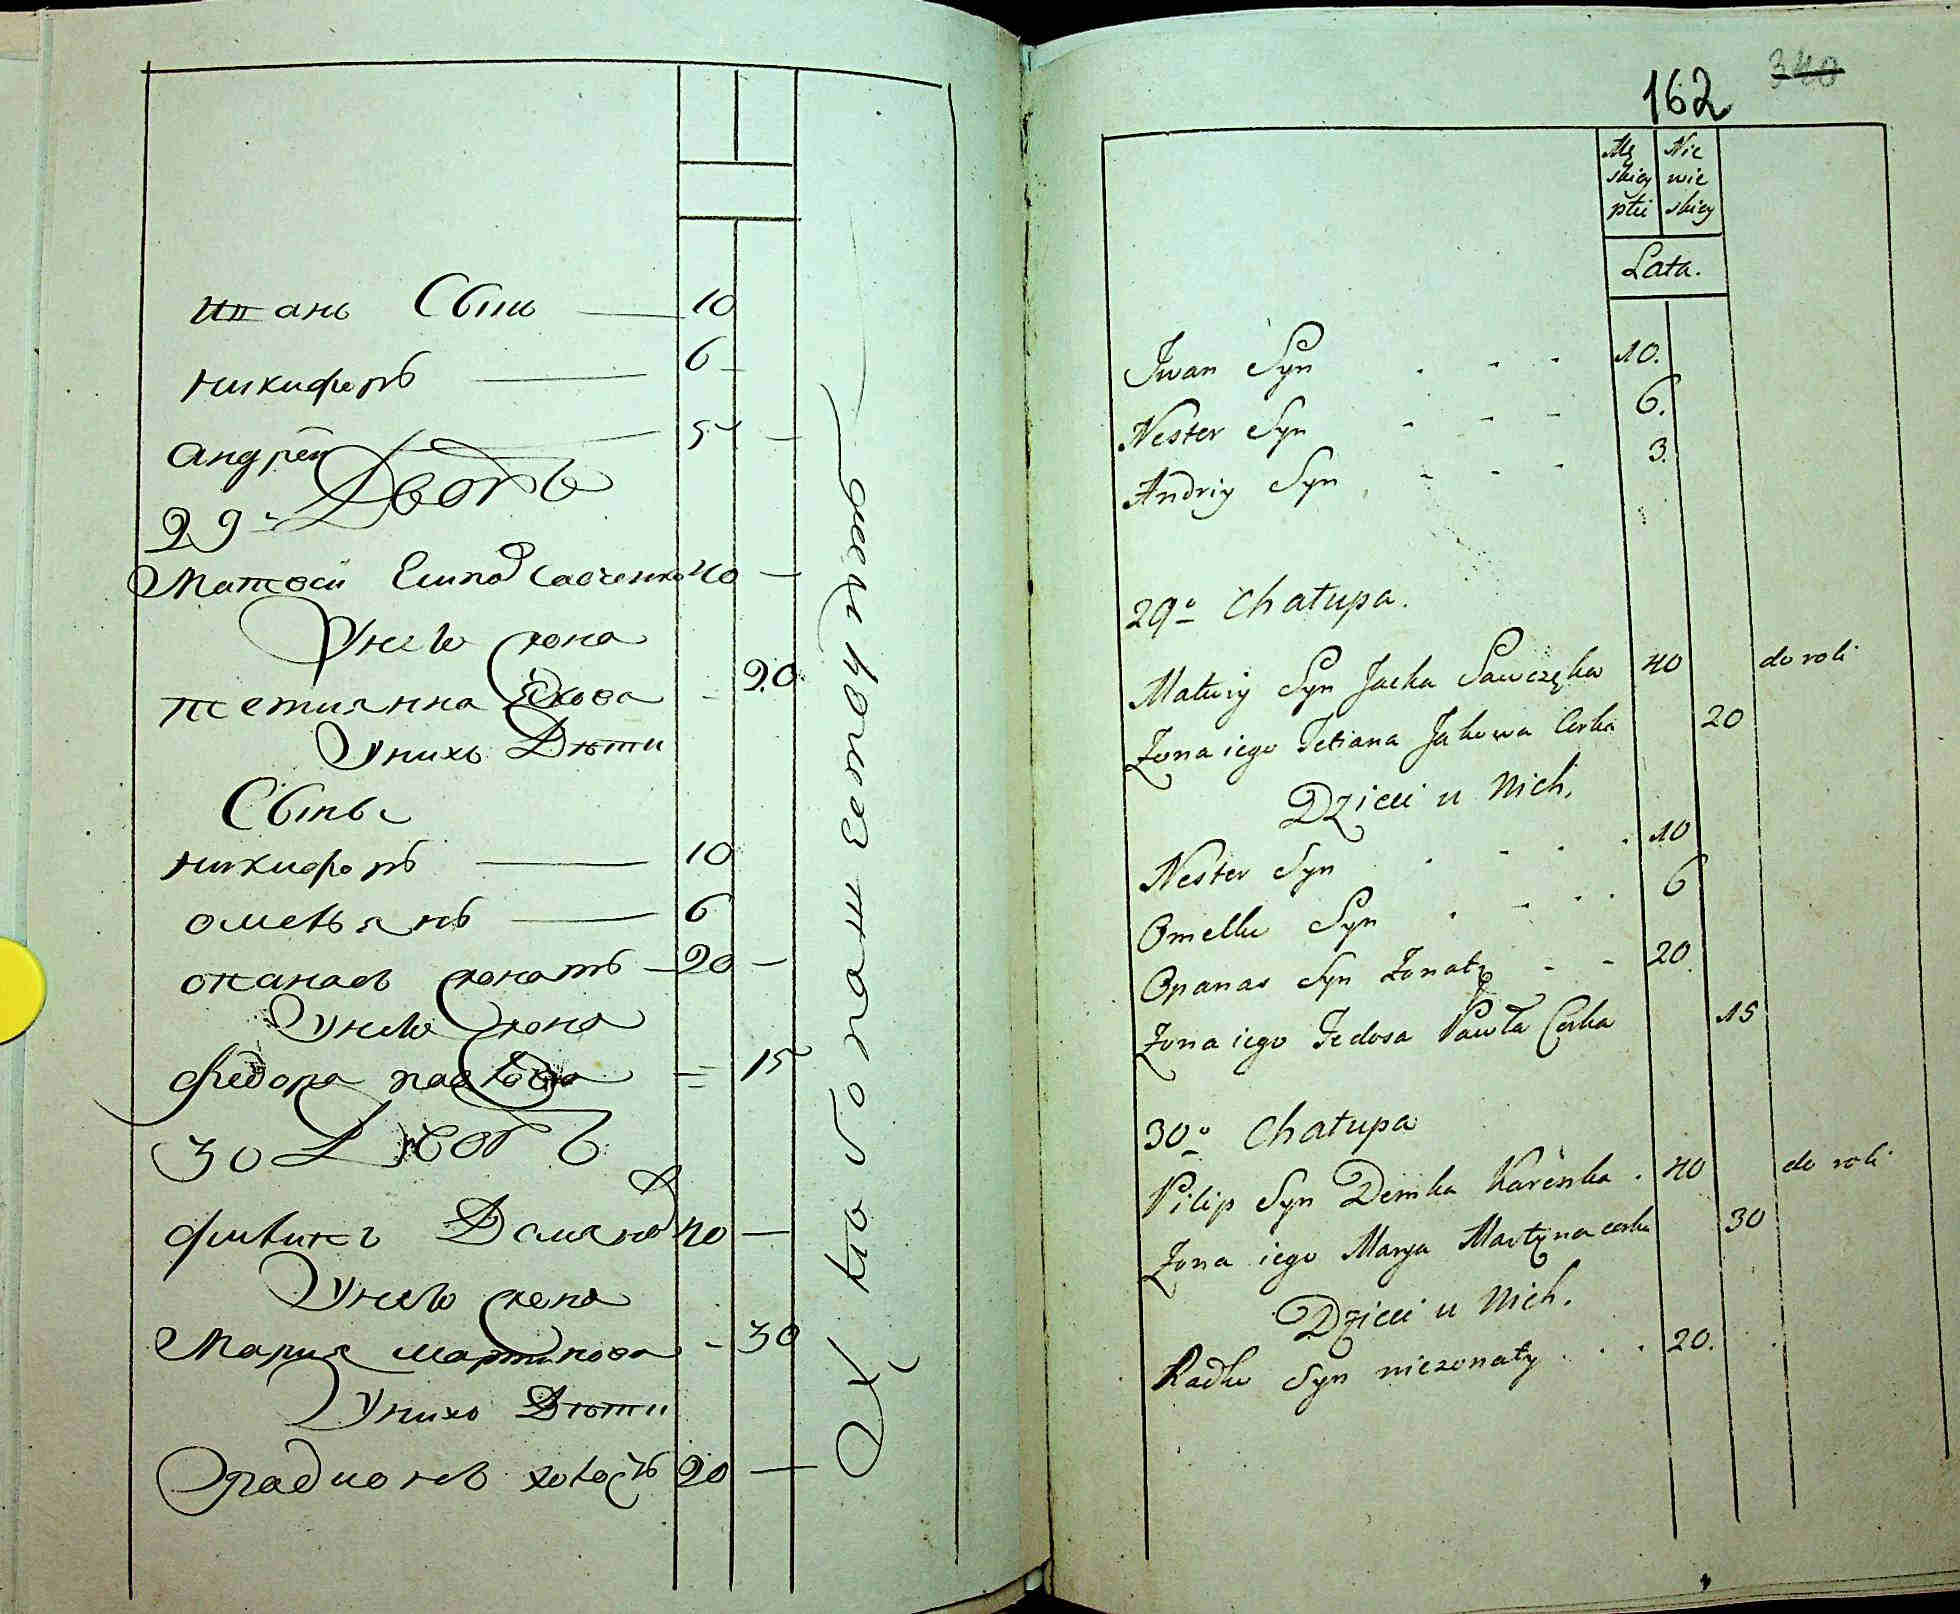 иванъ Сынъ 10
никифоръ 6
андрей 5
29 Дворъ
Матвей Савченко 40
У него жона
тетиянна Яхова 20
У нихъ Дѣти
Сынъ
никифоръ 10
омельянъ 6
опанасъ жонатъ 20
У него жона
Федора павлова 15
30 Дворъ
филипъ 40
У него жона
Мария мартинова 30
У нихъ Дѣти
радионъ холостъ 20
162
340
Mę Nie
skiey wie
płci skiey
Lata.
Jwan Syn 10.
Nester Syn 6.
Andriy Syn 3.
29º Chałupa.
Matwiy Syn Jacka Sawczęka 40 do roli
Żona iego Tetiana Jakowa Corka 20
Dzieci u Nich.
Nester Syn 10
Omelko Syn 6
Opanas Syn Żonaty 20
Żona iego Fedosa Pawła Corka 15
30º Chałupa
Pilip Syn Demka 40 do roli
Żona iego Marya Martyna corka 30
Dzieci u Nich.
Radko Syn nieżonaty 20.